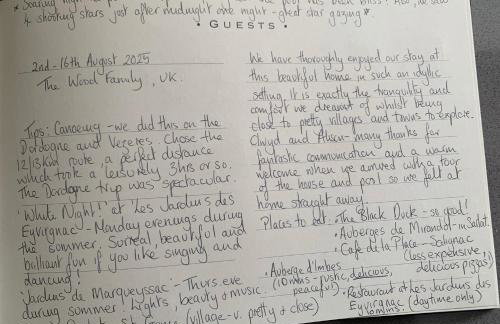 pool has been bliss! Also, we saw
4 shooting stars just after midnight one night - great star gazing*
• GUESTS •
2nd - 16th August 2025
The Wood Family, UK.
Tips: Canoeing - we did this on the
Dordogne and Vezeres. Chose the
12/15km route, a perfect distance
which took a leisurely 3hrs or so.
The Dordogne trip was spectacular.
'White Night!' at Les Jardins des
Eyrignac - Monday evenings during
the summer. Surreal, beautiful and
brilliant fun if you like singing and
dancing!
'Jardins de Marqueyssac' - Thurs. eve
during summer. Lights, beauty + music.
(village - v. pretty + close)
We have thoroughly enjoyed our stay at
this beautiful home in such an idyllic
setting. It is exactly the tranquility and
comfort we dreamt of whilst being
close to pretty villages and towns to explore.
Clwyd and Alison - many thanks for
fantastic communication and a warm
welcome when we arrived with a tour
of the house and pool so we felt at
home straight away.
Places to eat: The Black Duck - so good!
• Auberges de Mirandol - in Sarlat.
• Cafe de la Place - Salignac
(less expensive,
delicious pizzas)
• Auberge d'Imbes
(10 mins, rustic, delicious,
peaceful)
• Restaurant at Les Jardins des
Eyrignac (daytime only)
10 mins.